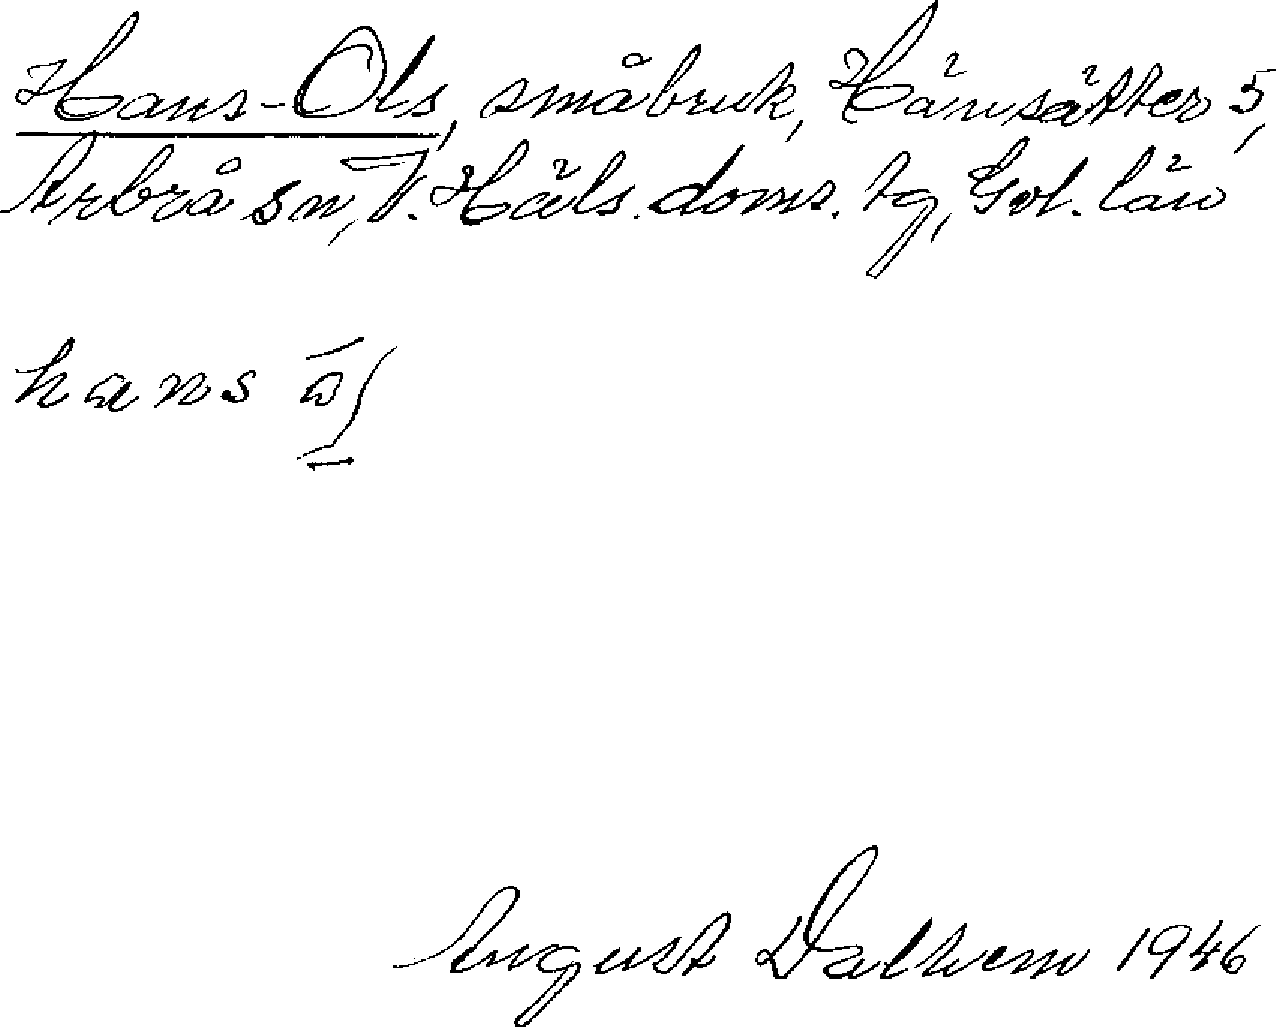 Hans-Ols, småbruk, Hänsätter 5,
Arbrå sn, V. Häls. doms. tg, Gvl. län
hans
August Dalhem 1946